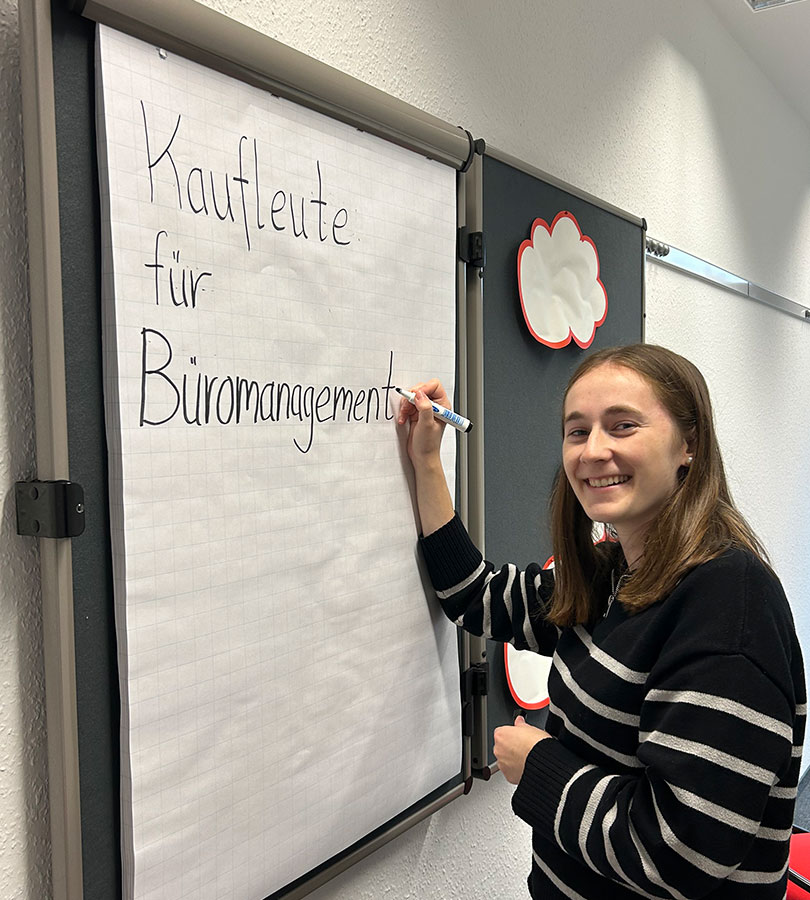 Kaufleute
für
Büromanagement